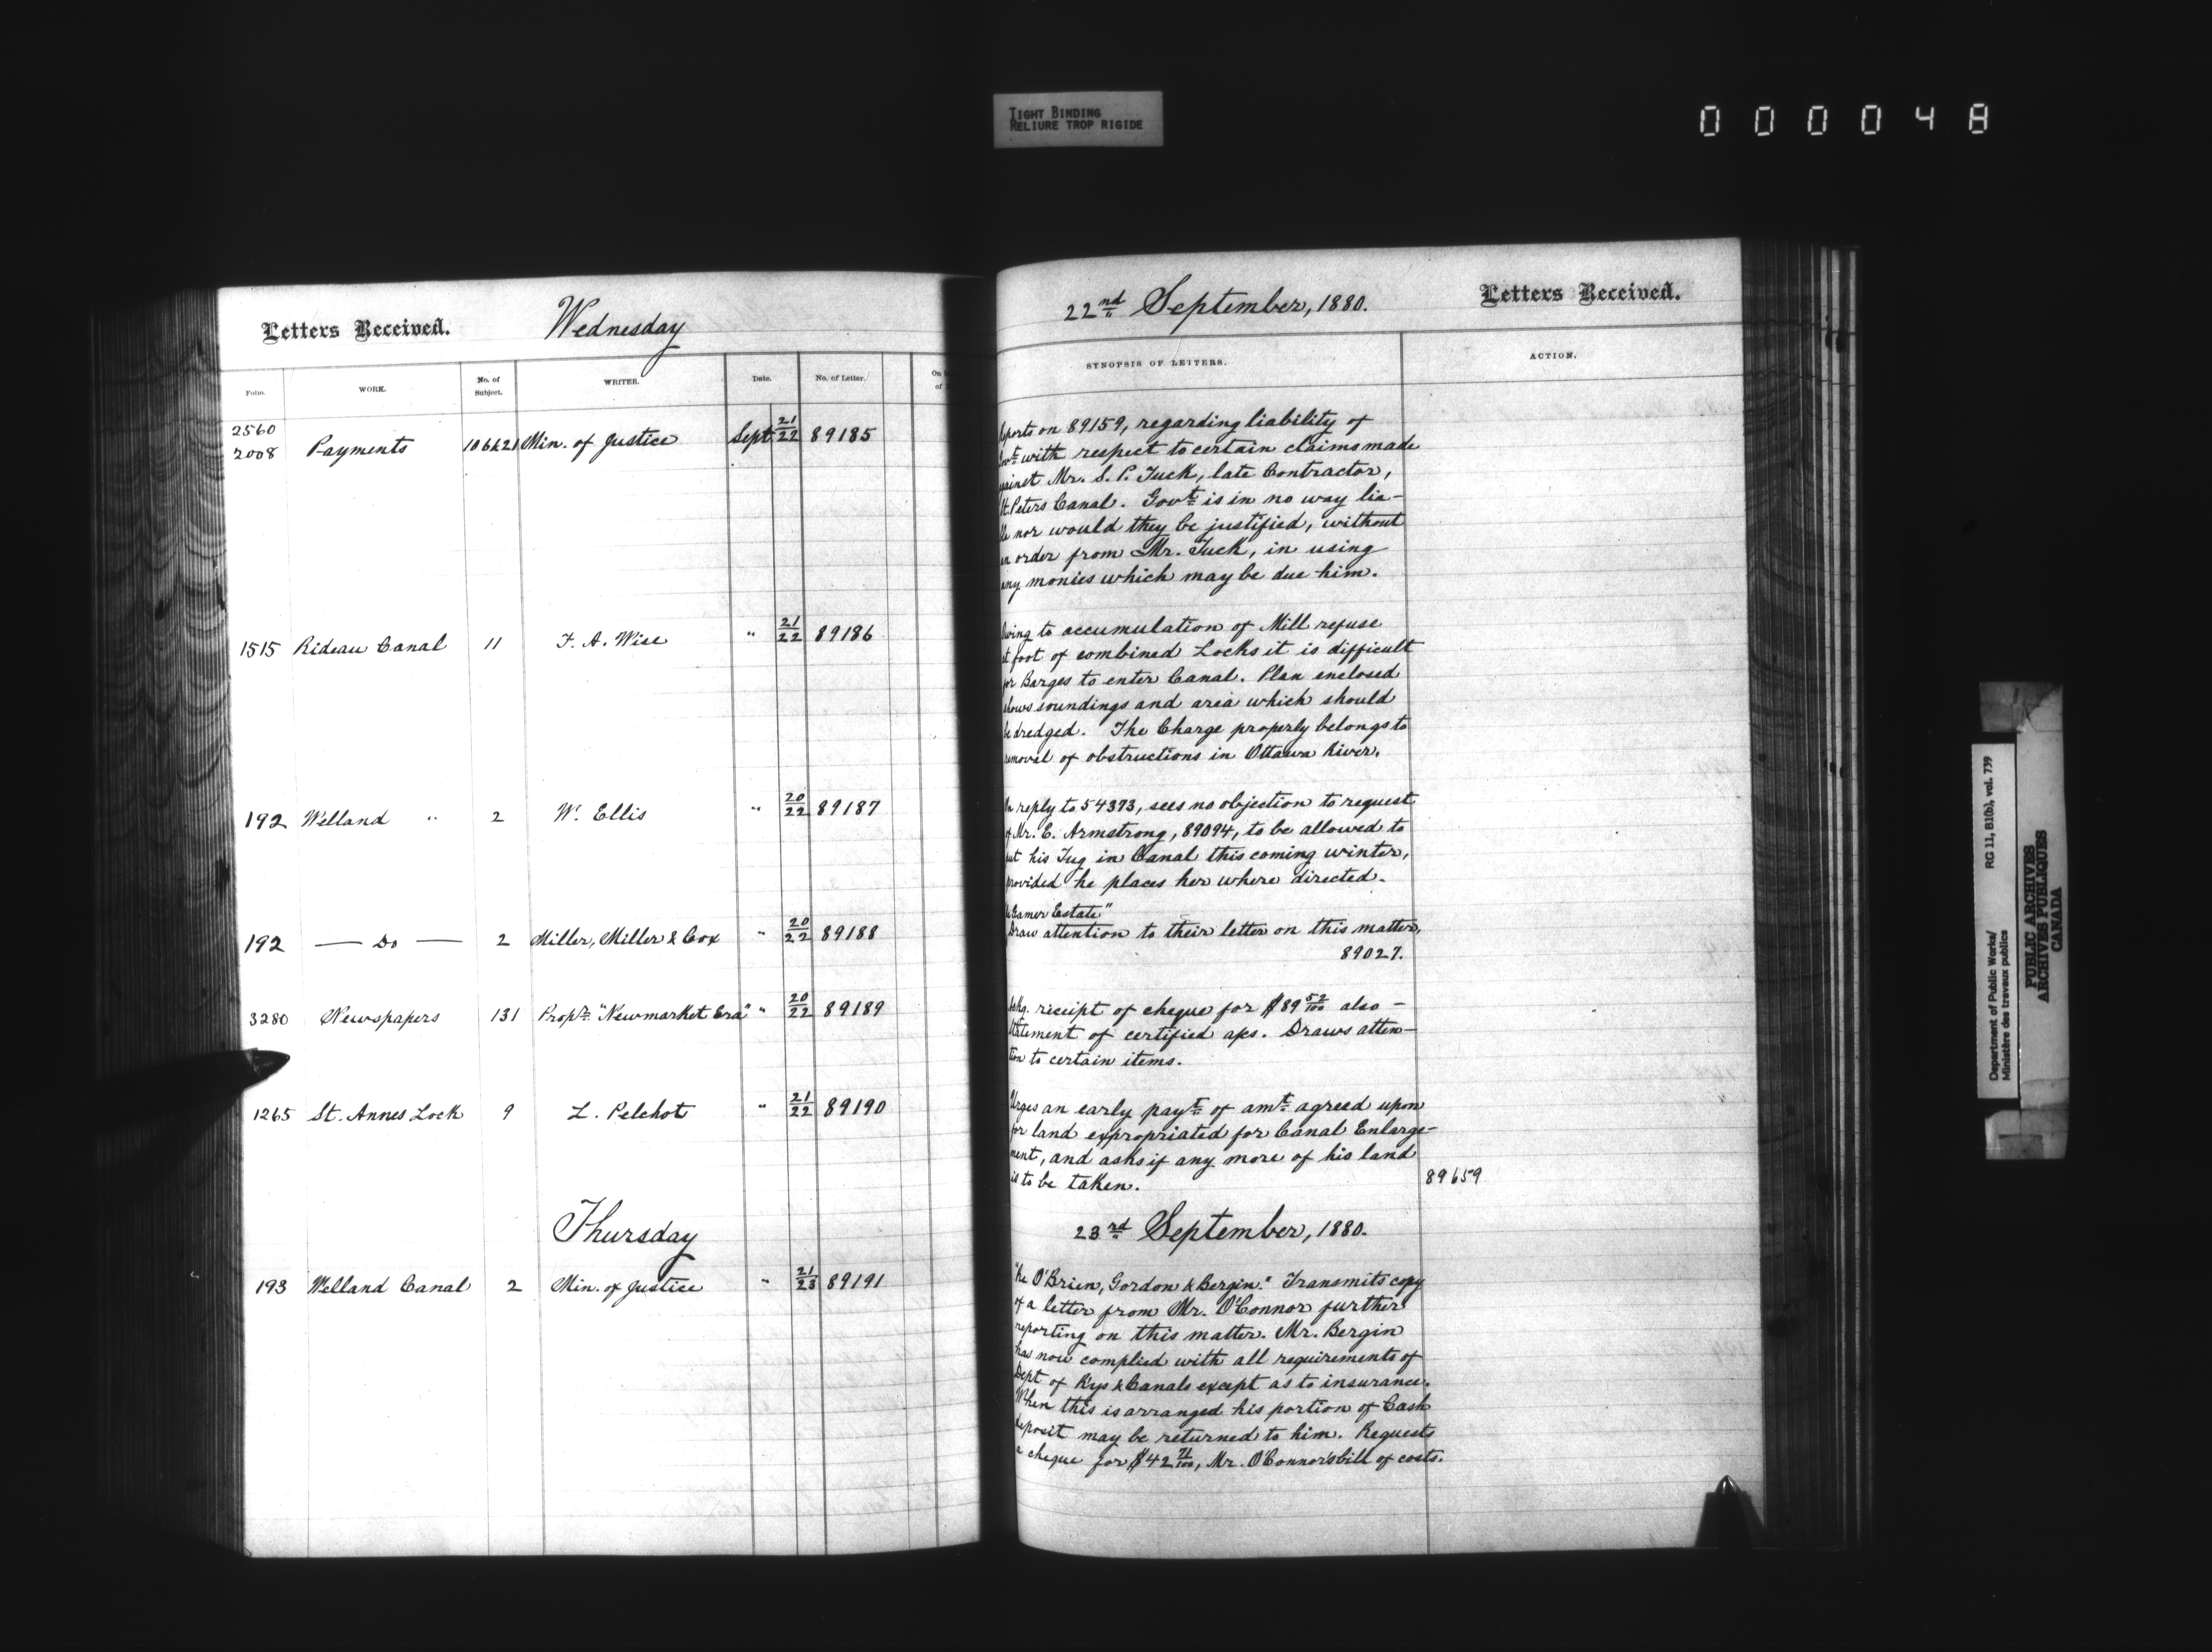 TIGHT BINDING
RELIURE TROP RIGIDE
000048
Letters Received.
Wednesday
Folio.
WORK.
No. of Subject.
WRITER.
Date.
No. of Letter.
On
of
2560
2008 Payments 106621 Min. of Justice Sept 21/22 89185
1515 Rideau Canal 11 F. A. Wise " 21/22 89186
192 Welland " 2 W. Ellis " 20/22 89187
192 — Do — 2 Miller, Miller & Cox " 20/22 89188
3280 Newspapers 131 Propr. "Newmarket Era" " 20/22 89189
1265 St. Annes Lock 9 L. Pelchot " 21/22 89190
Thursday
193 Welland Canal 2 Min. of Justice " 21/23 89191
22nd September, 1880.
Letters Received.
SYNOPSIS OF LETTERS.
ACTION.
eports on 89159, regarding liability of
ovt with respect to certain claims made
ainst Mr. S. P. Tuck, late Contractor,
St. Peters Canal. Govt is in no way lia-
le nor would they be justified, without
an order from Mr. Tuck, in using
any monies which may be due him.
Owing to accumulation of Mill refuse
at foot of combined Locks it is difficult
for Barges to enter Canal. Plan enclosed
shows soundings and area which should
be dredged. The Charge properly belongs to
removal of obstructions in Ottawa River.
In reply to 54373, sees no objection to request
of Mr. E. Armstrong, 89094, to be allowed to
put his Tug in Canal this coming winter,
provided he places her where directed.
Estate"
Draw attention to their letter on this matter,
89027.
Ackg. receipt of cheque for $89 52/100 also -
Statement of certified a/cs. Draws atten-
tion to certain items.
Urges an early payt of amt agreed upon
for land expropriated for Canal Enlarge-
ment, and asks if any more of his land
is to be taken.
89659
23rd September, 1880.
"Re O'Brien, Gordon & Bergin." Transmits copy
of a letter from Mr. O'Connor further
reporting on this matter. Mr. Bergin
has now complied with all requirements of
Dept of Rys & Canals except as to insurance.
When this is arranged his portion of Cash
deposit may be returned to him. Requests
a cheque for $42 71/100, Mr. O'Connor's bill of costs.
Department of Public Works/ RG 11, B1(b), vol. 739
Ministère des travaux publics
PUBLIC ARCHIVES
ARCHIVES PUBLIQUES
CANADA